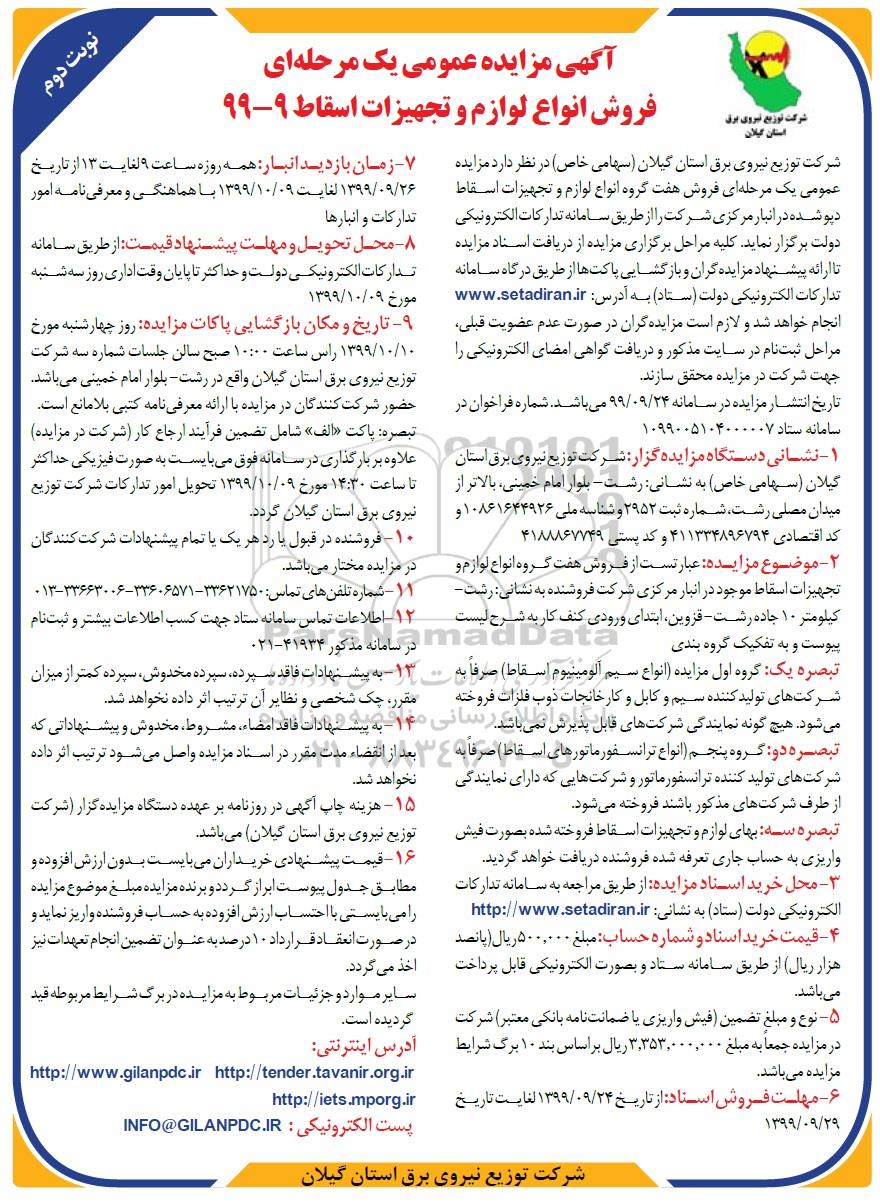 نوبت دوم
آگهی مزایده عمومی یک مرحله‌ای
فروش انواع لوازم و تجهیزات اسقاط ۹-۹۹
شرکت توزیع نیروی برق
استان گیلان
شرکت توزیع نیروی برق استان گیلان (سهامی خاص) در نظر دارد مزایده
عمومی یک مرحله‌ای فروش هفت گروه انواع لوازم و تجهیزات اسقاط
دپو شده در انبار مرکزی شرکت را از طریق سامانه تدارکات الکترونیکی
دولت برگزار نماید. کلیه مراحل برگزاری مزایده از دریافت اسناد مزایده
تا ارائه پیشنهاد مزایده‌گران و بازگشایی پاکت‌ها از طریق درگاه سامانه
تدارکات الکترونیکی دولت (ستاد) به آدرس: www.setadiran.ir
انجام خواهد شد و لازم است مزایده‌گران در صورت عدم عضویت قبلی،
مراحل ثبت‌نام در سایت مذکور و دریافت گواهی امضای الکترونیکی را
جهت شرکت در مزایده محقق سازند.
تاریخ انتشار مزایده در سامانه ۹۹/۰۹/۲۴ می‌باشد. شماره فراخوان در
سامانه ستاد ۱۰۹۹۰۰۵۱۰۴۰۰۰۰۰۷
۱-نشانی دستگاه مزایده گزار: شرکت توزیع نیروی برق استان
گیلان (سهامی خاص) به نشانی: رشت- بلوار امام خمینی، بالاتر از
میدان مصلی رشت، شماره ثبت ۲۹۵۲ و شناسه ملی ۱۰۸۶۱۶۴۴۹۲۶ و
کد اقتصادی ۴۱۱۳۳۴۸۹۶۷۹۴ و کد پستی ۴۱۸۸۸۶۷۷۴۹
۲-موضوع مزایده: عبارتست از فروش هفت گروه انواع لوازم و
تجهیزات اسقاط موجود در انبار مرکزی شرکت فروشنده به نشانی: رشت-
کیلومتر ۱۰ جاده رشت- قزوین، ابتدای ورودی کنف کار به شرح لیست
پیوست و به تفکیک گروه بندی
تبصره یک: گروه اول مزایده (انواع سیم آلومینیوم اسقاط) صرفاً به
شرکت‌های تولیدکننده سیم و کابل و کارخانجات ذوب فلزات فروخته
می‌شود. هیچ گونه نمایندگی شرکت‌های قابل پذیرش نمی‌باشد.
تبصره دو: گروه پنجم (انواع ترانسفورماتورهای اسقاط) صرفاً به
شرکت‌های تولید کننده ترانسفورماتور و شرکت‌هایی که دارای نمایندگی
از طرف شرکت‌های مذکور باشند فروخته می‌شود.
تبصره سه: بهای لوازم و تجهیزات اسقاط فروخته شده بصورت فیش
واریزی به حساب جاری تعرفه شده فروشنده دریافت خواهد گردید.
۳-محل خرید اسناد مزایده: از طریق مراجعه به سامانه تدارکات
الکترونیکی دولت (ستاد) به نشانی: http://www.setadiran.ir
۴-قیمت خرید اسناد و شماره حساب: مبلغ ۵۰۰,۰۰۰ ریال(پانصد
هزار ریال) از طریق سامانه ستاد و بصورت الکترونیکی قابل پرداخت
می‌باشد.
۵- نوع و مبلغ تضمین (فیش واریزی یا ضمانت‌نامه بانکی معتبر) شرکت
در مزایده جمعاً به مبلغ ۳,۳۵۳,۰۰۰,۰۰۰ ریال بر اساس بند ۱۰ برگ شرایط
مزایده می‌باشد.
۶-مهلت فروش اسناد: از تاریخ ۱۳۹۹/۰۹/۲۴ لغایت تاریخ
۱۳۹۹/۰۹/۲۹
۷-زمان بازدید انبار: همه روزه ساعت ۹ لغایت ۱۳ از تاریخ
۱۳۹۹/۰۹/۲۶ لغایت ۱۳۹۹/۱۰/۰۹ با هماهنگی و معرفی‌نامه امور
تدارکات و انبارها
۸-محل تحویل و مهلت پیشنهاد قیمت: از طریق سامانه
تدارکات الکترونیکی دولت و حداکثر تا پایان وقت اداری روز سه‌شنبه
مورخ ۱۳۹۹/۱۰/۰۹
۹- تاریخ و مکان بازگشایی پاکات مزایده: روز چهارشنبه مورخ
۱۳۹۹/۱۰/۱۰ راس ساعت ۱۰:۰۰ صبح سالن جلسات شماره سه شرکت
توزیع نیروی برق استان گیلان واقع در رشت- بلوار امام خمینی می‌باشد.
حضور شرکت‌کنندگان در مزایده با ارائه معرفی‌نامه کتبی بلامانع است.
تبصره: پاکت «الف» شامل تضمین فرآیند ارجاع کار (شرکت در مزایده)
علاوه بر بارگذاری در سامانه فوق می‌بایست به صورت فیزیکی حداکثر
تا ساعت ۱۴:۳۰ مورخ ۱۳۹۹/۱۰/۰۹ تحویل امور تدارکات شرکت توزیع
نیروی برق استان گیلان گردد.
۱۰- فروشنده در قبول یا رد هر یک یا تمام پیشنهادات شرکت‌کنندگان
در مزایده مختار می‌باشد.
۱۱-شماره تلفن‌های تماس: ۳۳۶۲۱۷۵۰-۳۳۶۰۶۵۷۱-۳۳۶۶۳۰۰۶-۰۱۳
۱۲-اطلاعات تماس سامانه ستاد جهت کسب اطلاعات بیشتر و ثبت‌نام
در سامانه مذکور ۴۱۹۳۴-۰۲۱
۱۳-به پیشنهادات فاقد سپرده، سپرده مخدوش، سپرده کمتر از میزان
مقرر، چک شخصی و نظایر آن ترتیب اثر داده نخواهد شد.
۱۴- به پیشنهادات فاقد امضاء، مشروط، مخدوش و پیشنهاداتی که
بعد از انقضاء مدت مقرر در اسناد مزایده واصل می‌شود ترتیب اثر داده
نخواهد شد.
۱۵- هزینه چاپ آگهی در روزنامه بر عهده دستگاه مزایده‌گزار (شرکت
توزیع نیروی برق استان گیلان) می‌باشد.
۱۶-قیمت پیشنهادی خریداران می‌بایست بدون ارزش افزوده و
مطابق جدول پیوست ابراز گردد و برنده مزایده مبلغ موضوع مزایده
را می‌بایستی با احتساب ارزش افزوده به حساب فروشنده واریز نماید و
در صورت انعقاد قرارداد ۱۰ درصد به عنوان تضمین انجام تعهدات نیز
اخذ می‌گردد.
سایر موارد و جزئیات مربوط به مزایده در برگ شرایط مربوطه قید
گردیده است.
آدرس اینترنتی:
http://www.gilanpdc.ir http://tender.tavanir.org.ir
http://iets.mporg.ir
پست الکترونیکی : INFO@GILANPDC.IR
شرکت توزیع نیروی برق استان گیلان
ParsNamadData
پایگاه اطلاع رسانی مناقصه و مزایده
۰۲۱-۸۸۳۴۹۶۷۰-۵